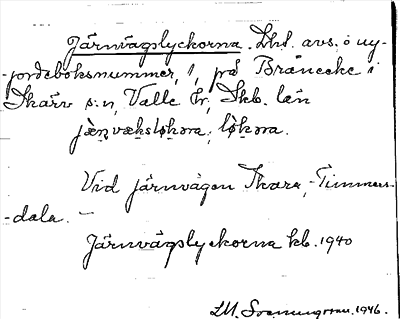 Järnvägslyckorna. Lht. avs. å ny-
-jordeboksnummer, 1, på Bränecke i
Skärv s:n, Valle hr, Skb. län
jæṇvæksløkɷra, løkɷra.
Vid järnvägen Skara-Timmers-
-dala. -
Järnvägslyckorna kb. 1940
1946.